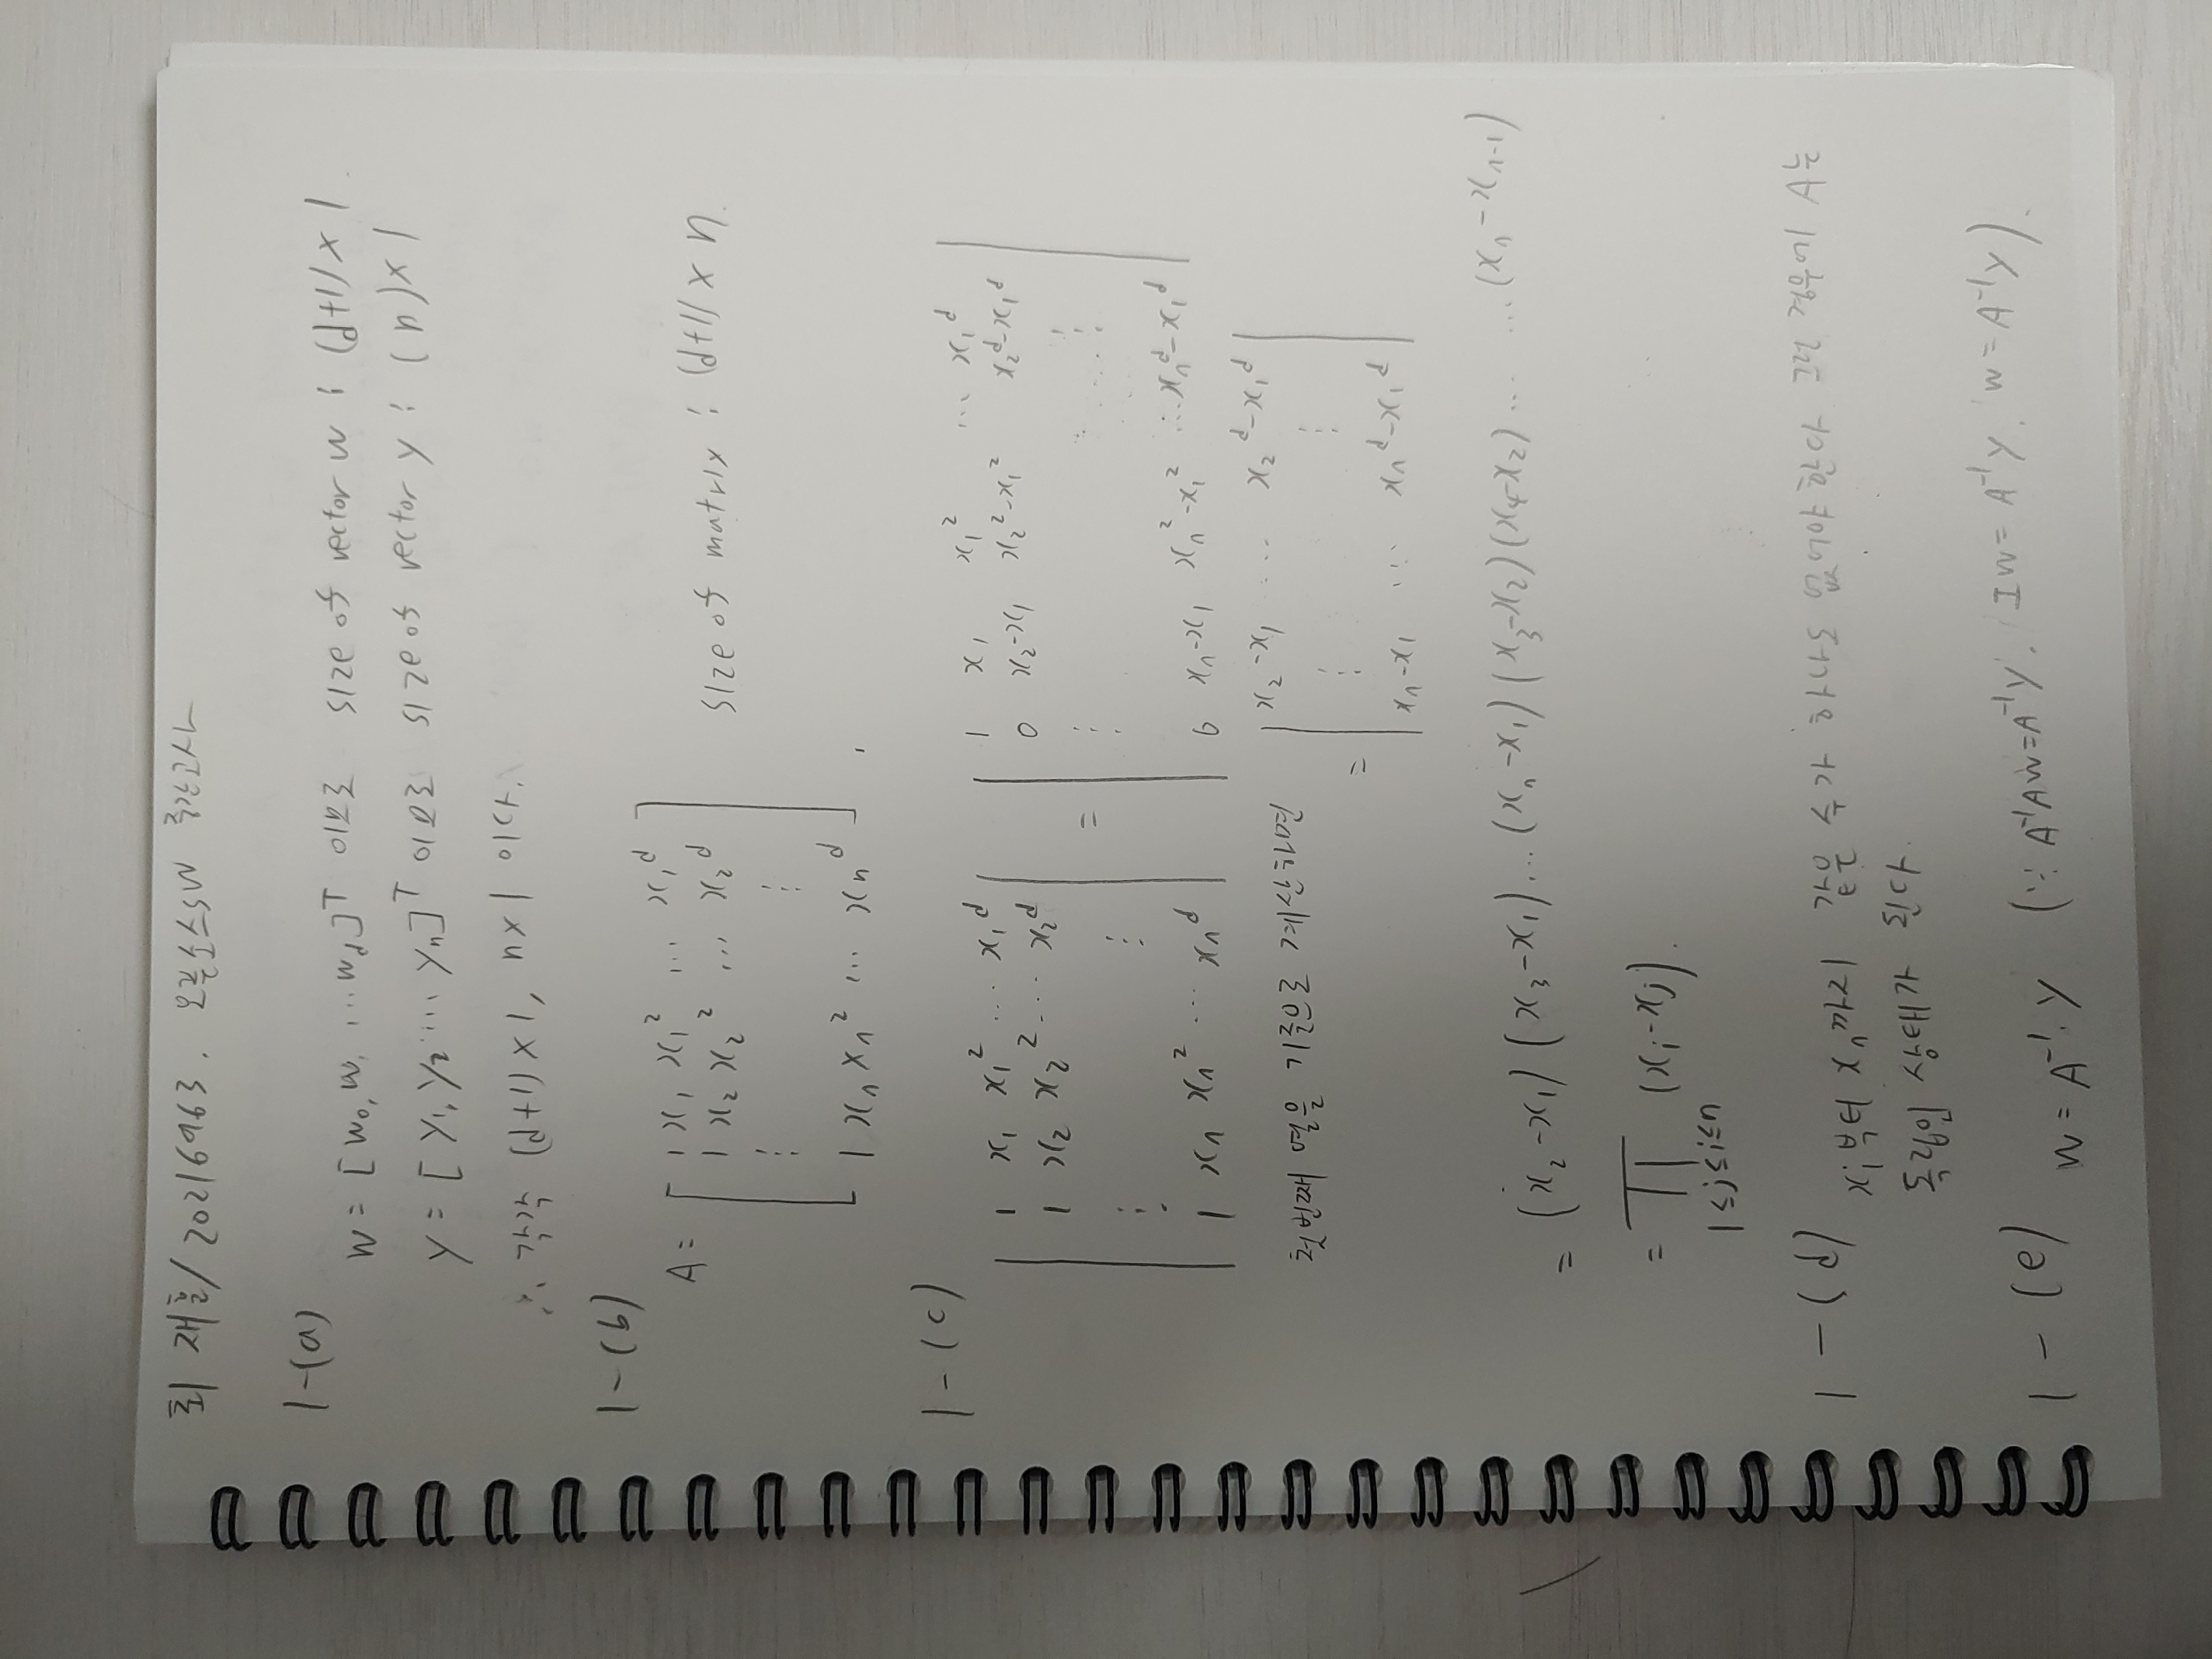 최 재훈/20216963. 오픈소스SW 중간고사
1-(a)
w = [w₀, w₁ ... w_d]ᵀ 이므로 size of vector w : (d+1) × 1.
y = [y₁, y₂ ... yₙ]ᵀ 이므로 size of vector y : (n) × 1
∴ 각각 (d+1) × 1, n × 1 이다.
1-(b)
A = [ 1 x₁ x₁² ... x₁ᵈ
1 x₂ x₂² ... x₂ᵈ
⋮ ⋮
1 xₙ xₙ² ... xₙᵈ ] ,
size of matrix : (d+1) × n.
1-(c)
| 1 x₁ x₁² ... x₁ᵈ
1 x₂ x₂² ... x₂ᵈ
⋮ ⋮
1 xₙ xₙ² ... xₙᵈ |
= | 1 x₁ x₁² ... x₁ᵈ
0 x₂-x₁ x₂²-x₁² x₂ᵈ-x₁ᵈ
⋮ ⋮
0 xₙ-x₁ xₙ²-x₁² ... xₙᵈ-x₁ᵈ |
첫번째 열을 기준으로 계산하면
= | x₂-x₁ ... x₂ᵈ-x₁ᵈ
⋮ ⋮
xₙ-x₁ ... xₙᵈ-x₁ᵈ |
= (x₂-x₁)(x₃-x₁)...(xₙ-x₁)(x₃-x₂)(x₄-x₂)... ...(xₙ-xₙ₋₁)
= ∏ (xᵢ-xⱼ).
1≤j≤i≤n
1-(d) x₁부터 xₙ까지 같은 수가 하나도 없어야 한다 그런 경우에 A는
독립인 상태가 된다.
1-(e) w = A⁻¹·y (∵ A⁻¹Aw=A⁻¹y. Iw = A⁻¹y. w = A⁻¹y).